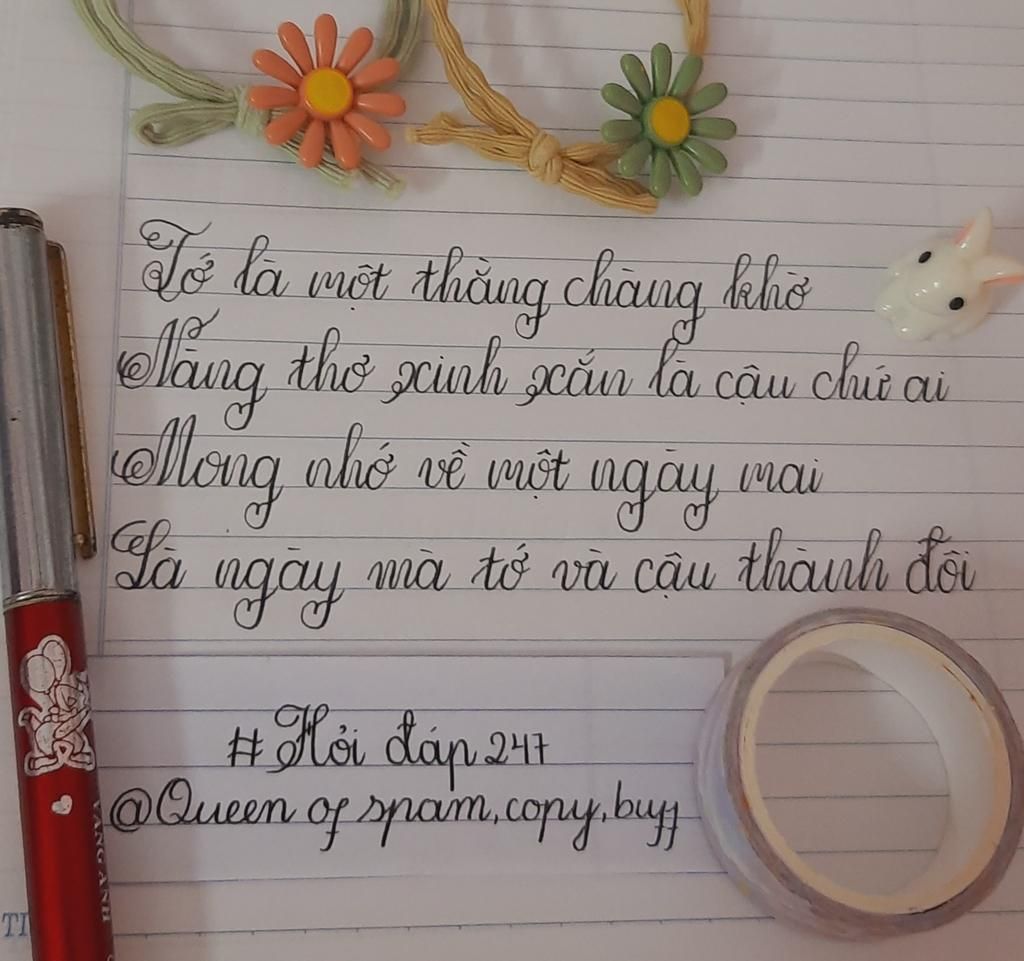 Tớ là một thằng chàng khờ
Nàng thơ xinh xắn là cậu chứ ai
Mong nhớ về một ngày mai
Là ngày mà tớ và cậu thành đôi
#Hỏi đáp 247
@Queen of spam, copy, buff
VANG ANH
TI